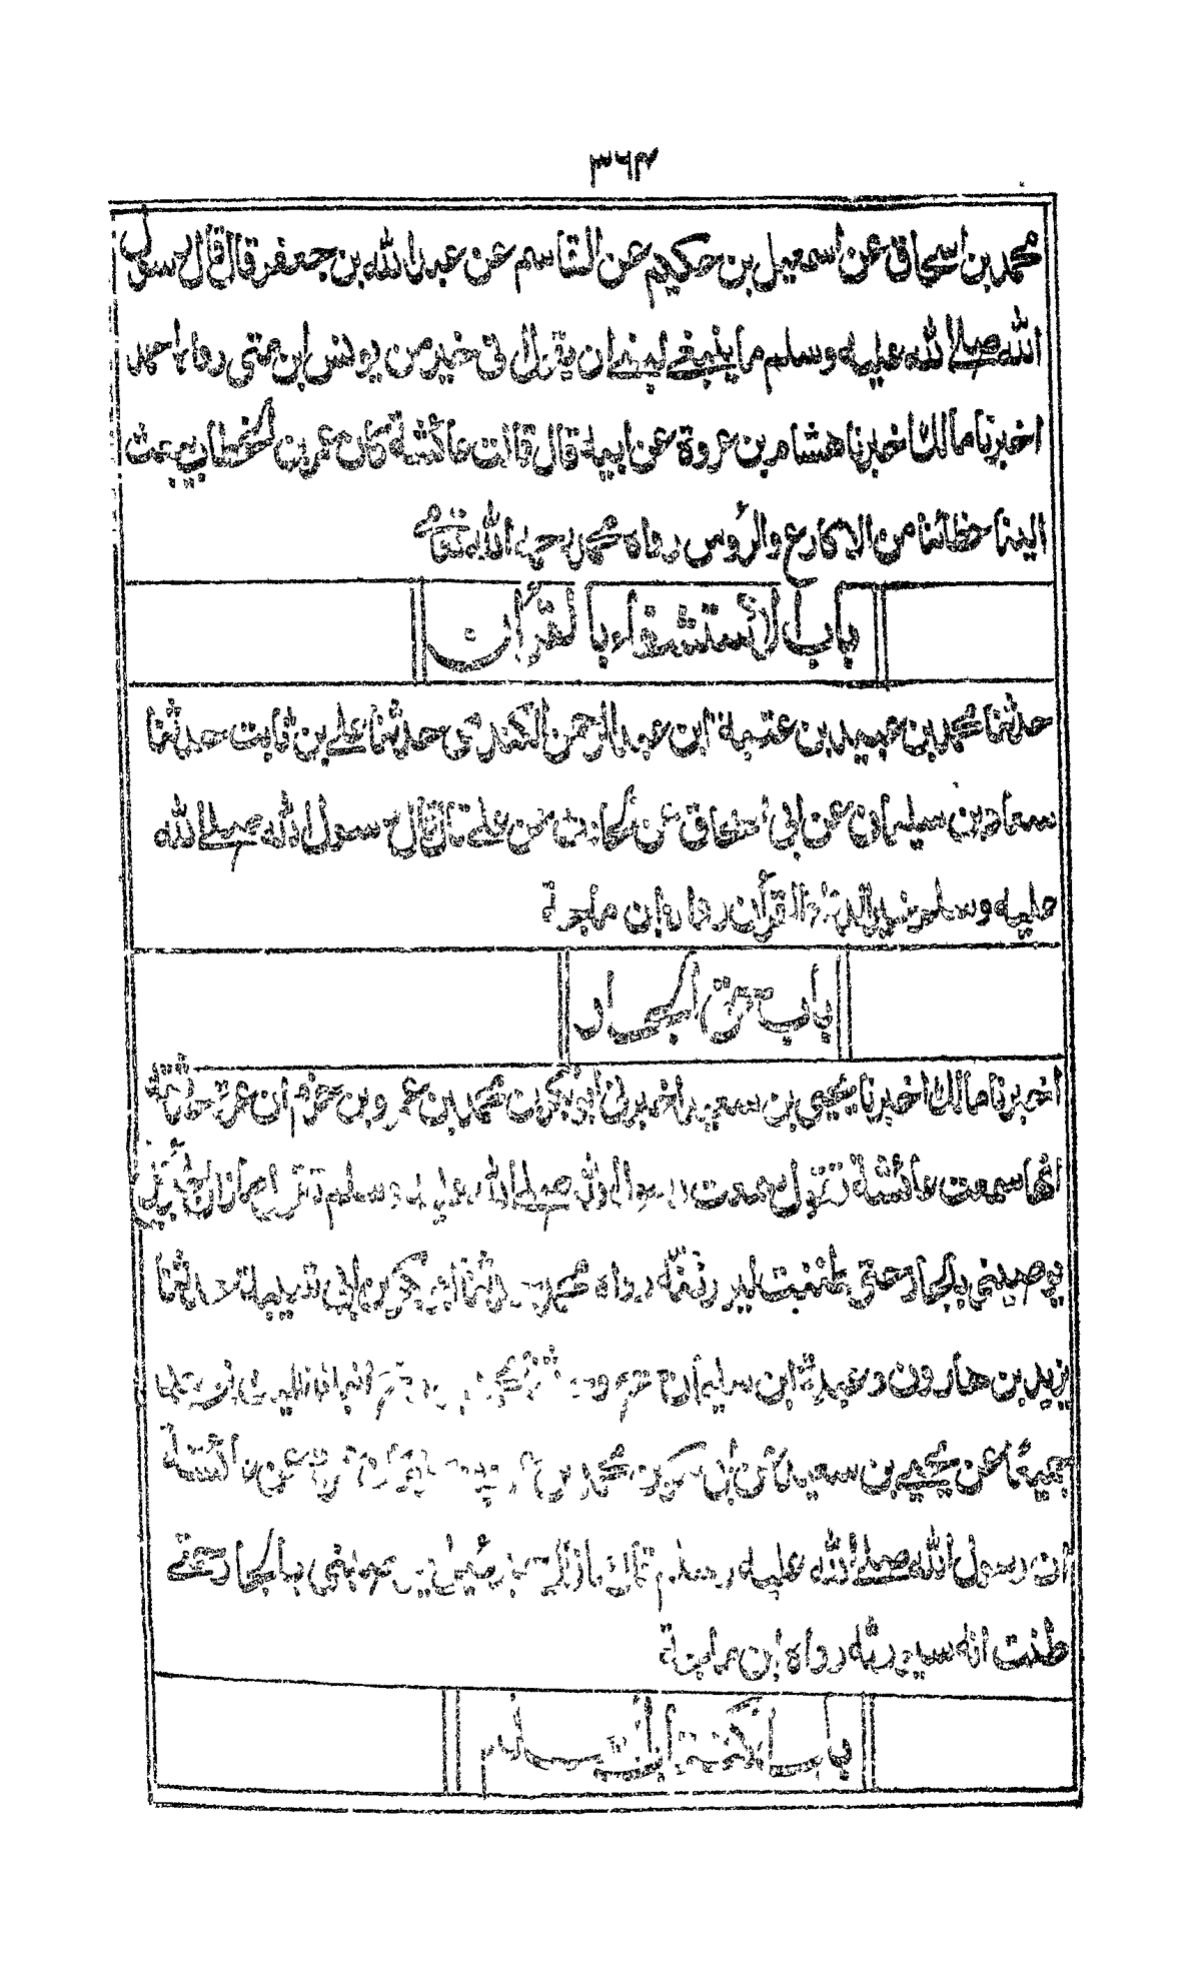 ٣٦٤
محمد بن اسحاق عن اسمعيل بن حكيم عن القاسم عن عبد الله بن جعفر قال قال رسول
الله صلے الله عليه وسلم ما ينبغے لنبے ان يقول انی خير من يونس ابن متی رواه احمد
اخبرنا مالك اخبرنا هشام بن عروة عن ابيه قال قالت عائشة كان عمر بن الخطاب يبعث
الينا حظائنا من الاكارع والرؤس رواه محمد رحمه الله تعالے
باب الاستشفاء بالقرآن
حدثنا محمد بن عبيد بن عتبة ابن عبد الرحمن الكندی حدثنا علے بن ثابت حدثنا
سعاد بن سليمان عن ابی اسحاق عن الحارث عن علے قال قال رسول الله صلے الله
عليه وسلم خير الدواء القرآن رواه ابن ماجة
باب حق الجار
اخبرنا مالك اخبرنا يحيی بن سعيد اخبرنی ابو بكر بن محمد بن عمرو بن حزم ان عمرة حدثته
انها سمعت عائشة تقول سمعت رسول الله صلے الله عليه وسلم يقول ما زال جبريل
يوصينی بالجار حتی ظننت ليورثنه رواه محمد حدثنا ابو بكر بن ابی شيبة حدثنا
يزيد بن هارون وعبدة ابن سليمان ح وحدثنا محمد بن رمح انبانا الليث بن سعد
جميعا عن يحيے بن سعيد عن ابی بكر بن محمد بن عمرو عن عمرة عن عائشة
ان رسول الله صلے الله عليه وسلم قال ما زال جبرئيل يوصينی بالجار حتے
ظننت انه سيورثه رواه ابن ماجة